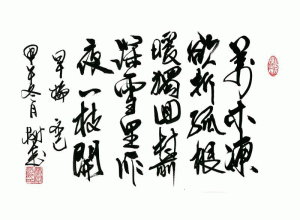 萬木凍
欲折孤根
暖獨回前村
深雪里昨
夜一枝開
早梅 齊己
甲午冬月